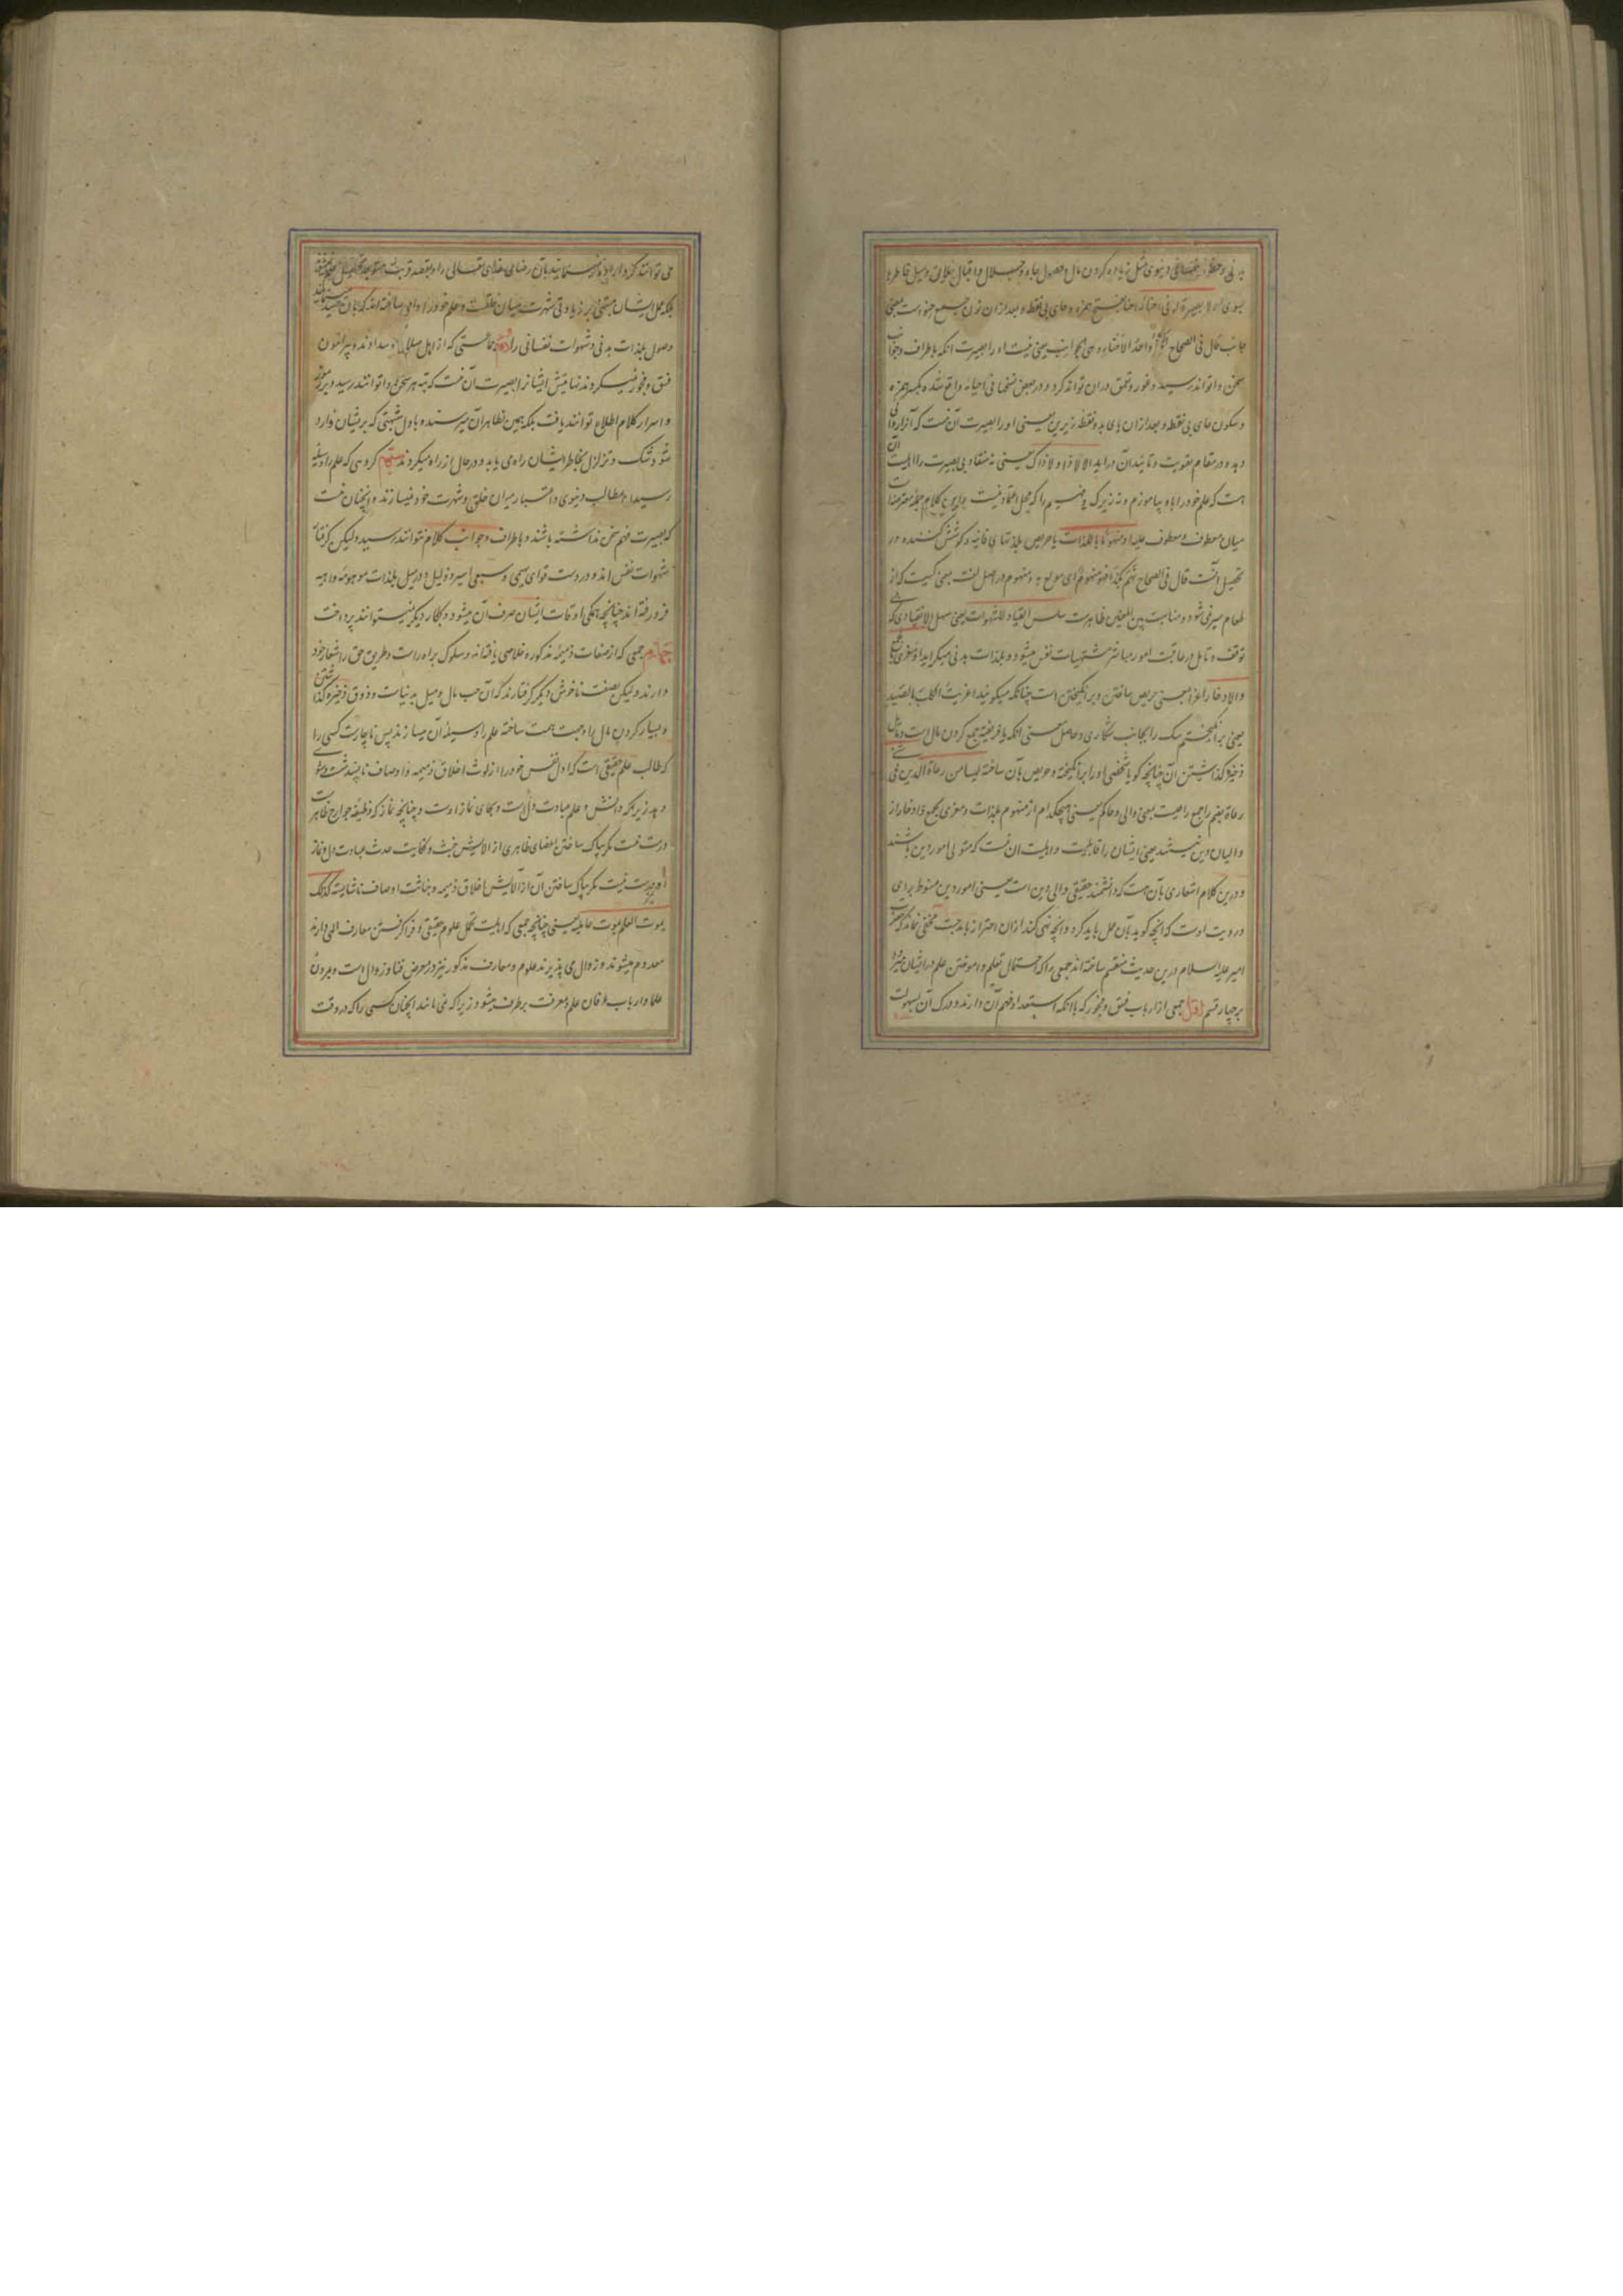 بدنی و حظوظ نفسانی دنیوی مثل زیاده کردن مال و حصول جاه و جلال و اقبال خلایق و میل خاطرها
بسوی او لا بصیرة له فی احنائه احنا بفتح همزه و حای بی نقطه و بعد از ان نون جمع حنو است بمعنی
جانب قال فی الصحاح الحنو واحد الاحناء و هی الجوانب یعنی نیست او را بصیرت انکه باطراف و جوانب
سخن دا تواند رسید و غور و تعمق در ان تواند کرد و در بعض نسخها فی احیائه واقع شده بکسر همزه
و سکون حای بی نقطه و بعد از ان یای بدو نقطه زیرین یعنی او را بصیرت آن نیست که آنرا روانی
دهد و در مقام تقویت و تایید آن در اید الا لا ذا و لا ذاک یعنی نه منقاد بی بصیرت را اهلیت آن
هست که علم خود را باو بیاموزم و نه زیرک فهیم را که محل اعتماد نیست و این کلام جمله معترضه است
میان معطوف و معطوف علیه او منهوما باللذات یا حریص بلذتهای فانیه و کوشش کننده در
تحصیل آنست قال فی الصحاح نهم بکذا فهو منهوم ای مولع به و منهوم در اصل لغت بمعنی کسیست که از
طعام سیر نمی شود و مناسبت بین المعنین ظاهرست سلس القیاد للشهوات یعنی سهل الانقیادی که بی
توقف و تامل در عاقبت امور مباشر مشتهیات نفس میشود و بلذات بدنی میگراید او مغری بالجمع
والادخار اغرا بمعنی حریص ساختن و برانگیختن است چنانکه میگویند اغریت الکلب بالصید
یعنی برانگیختم سگ را بجانب شکاری و حاصل معنی انکه یا فریفته جمع کردن مال است و مایل
ذخیره گذاشتن آن چنانچه گویا شخصی او را برانگیخته و حریص بآن ساخته لیسا من رعاة الدین فی شیء
رعاة بضم را جمع راعیست بمعنی والی و حاکم یعنی هیچکدام از منهوم بلذات و مغری بجمع و ادخار از
والیان دین نیستند یعنی ایشان را قابلیت و اهلیت ان نیست که متولی امور دین باشند
و درین کلام اشعاری بآن هست که دانشمند حقیقی والی دین است یعنی امور دین منوط برای
و رویت اوست که انچه گوید بآن عمل باید کرد و انچه نهی کند از ان احتراز باید جست مخفی نماند که حضرت
امیر علیه السلام درین حدیث منقسم ساخته اند جمعی را که احتمال تعلیم و اموختن علم در ایشان میرود
بر چهار قسم اول جمعی از ارباب فسق و فجور که با انکه استعداد فهم آن دارند و درک آن بسهولت
می توانند کرد اراده نمی نمایند بآن رضای خدای تعالی را و بقصد قربت متوجه تحصیل علم نمیشوند
بلکه عمل ایشان مبتنی بر زیادتی شهرت میان خلقست و علم خود را دامی ساخته اند که بآن صید مینمایند
وصول بلذات بدنی و شهوات نفسانی را دویم جماعتی که از اهل صلاح و سدادند و پیرامون
فسق و فجور نمیگردند نهایتش ایشانرا بصیرت آن نیست که بته هر سخن وا توانند رسید و بر رموز
و اسرار کلام اطلاع توانند یافت بلکه همین بظاهر آن میرسند و باول شبهتی که بر ایشان وارد
شود شک و تزلزل بخاطر ایشان راه می یابد و در حال از راه میگردند سیم گروهی که علم را وسیله
رسیدن بمطالب دنیوی و اعتبار میان خلق و شهرت خود نمیسازند و انچنان نیست
که بصیرت فهم سخن نداشته باشند و باطراف و جوانب کلام نتوانند رسید ولیکن گرفتار
شهوات نفس اند و در دست قوای بهیمی و سبعی اسیر و ذلیل و در میل بلذات موهومه واهیه
فرو رفته اند چنانچه همگی اوقات ایشان صرف آن میشود و بکار دیگر نمیتوانند پرداخت
چهارم جمعی که از صفات ذمیمه مذکوره خلاصی یافته اند و سلوک براه راست و طریق حق را شعار خود
دارند ولیکن بصفت ناخوش دیگر گرفتارند که آن حب مال و میل بدنیاست و ذوق ذخیره گذاشتن
و بسیار کردن مال را وجهت همت ساخته علم را وسیله آن میسازند پس ناچارست کسی را
که طالب علم حقیقی است که اول نفس خود را از لوث اخلاق ذمیمه و اوصاف ناپسند شست و شوی
دهد زیرا که دانش و علم عبادت دل است و بجای نماز اوست و چنانچه نماز که وظیفه جوارح ظاهر است
درست نیست مگر بپاک ساختن اعضای ظاهری از الایش خبث و کثافت حدث عبادت دل و نماز
او درست نیست مگر بپاک ساختن آن از آلایش اخلاق ذمیمه و خباثت اوصاف ناشایسته کذلک
یموت العلم بموت حاملیه یعنی چنانچه جمعی که اهلیت تحمل علوم حقیقی و فرا گرفتن معارف الهی دارند
معدوم میشوند و زوال می پذیرند علوم و معارف مذکور نیز در معرض فنا و زوال است و بمردن
علما و ارباب عرفان علم و معرفت برطرف میشود زیرا که نمی مانند انچنان کسی را که در وقت